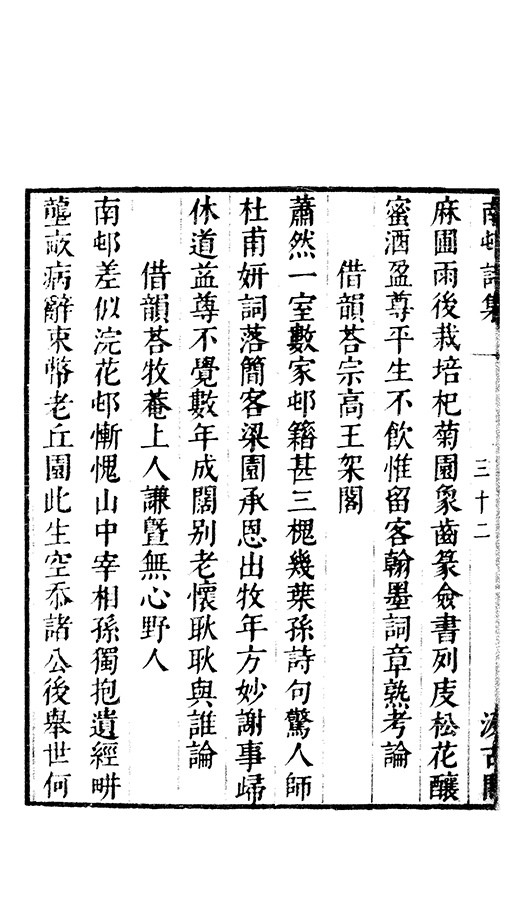 南邨詩集 一 三十二 汲古閣
麻圃雨後栽培杞菊園象齒篆僉書列庋松花釀
蜜酒盈尊平生不飲惟留客翰墨詞章熟考論
借韻荅宗高王架閣
蕭然一室數家邨籍甚三槐幾葉孫詩句驚人師
杜甫妍詞落簡客梁園承恩出牧年方妙謝事歸
休道益尊不覺數年成闊別老懷耿耿與誰論
借韻荅牧菴上人謙曁無心野人
南邨差似浣花邨慚愧山中宰相孫獨抱遺經畊
壟畝病辭束幣老丘園此生空忝諸公後舉世何